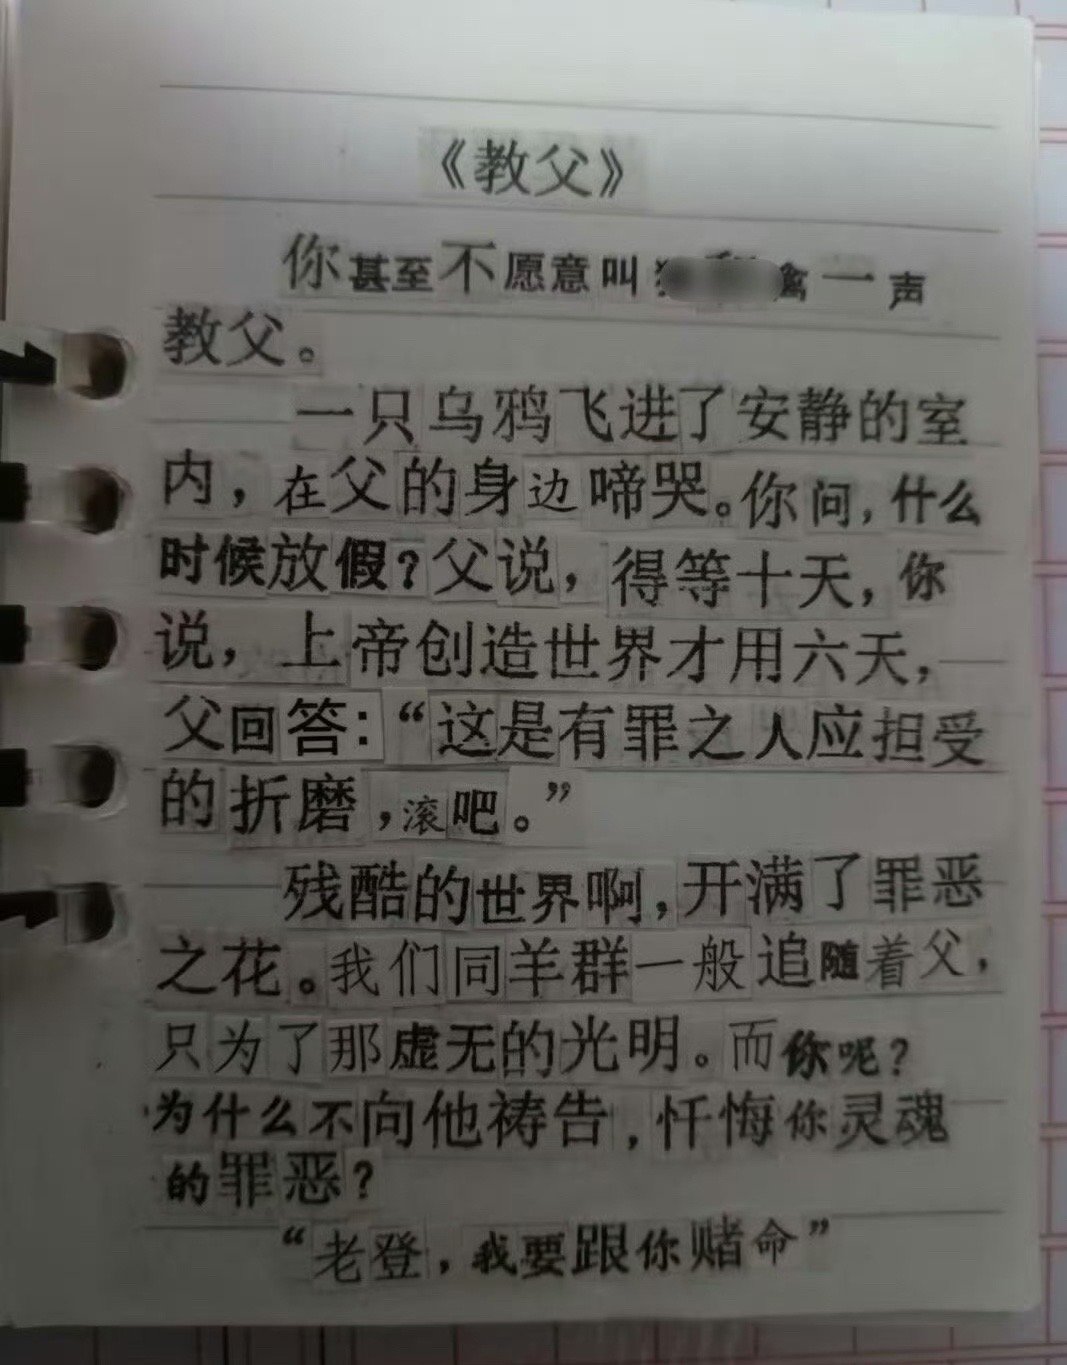 《教父》
你甚至不愿意叫 禽一声
教父。
一只乌鸦飞进了安静的室
内，在父的身边啼哭。你问，什么
时候放假？父说，得等十天，你
说，上帝创造世界才用六天，
父回答：“这是有罪之人应担受
的折磨，滚吧。”
残酷的世界啊，开满了罪恶
之花。我们同羊群一般追随着父，
只为了那虚无的光明。而你呢？
为什么不向他祷告，忏悔你灵魂
的罪恶？
“老登，我要跟你赌命”